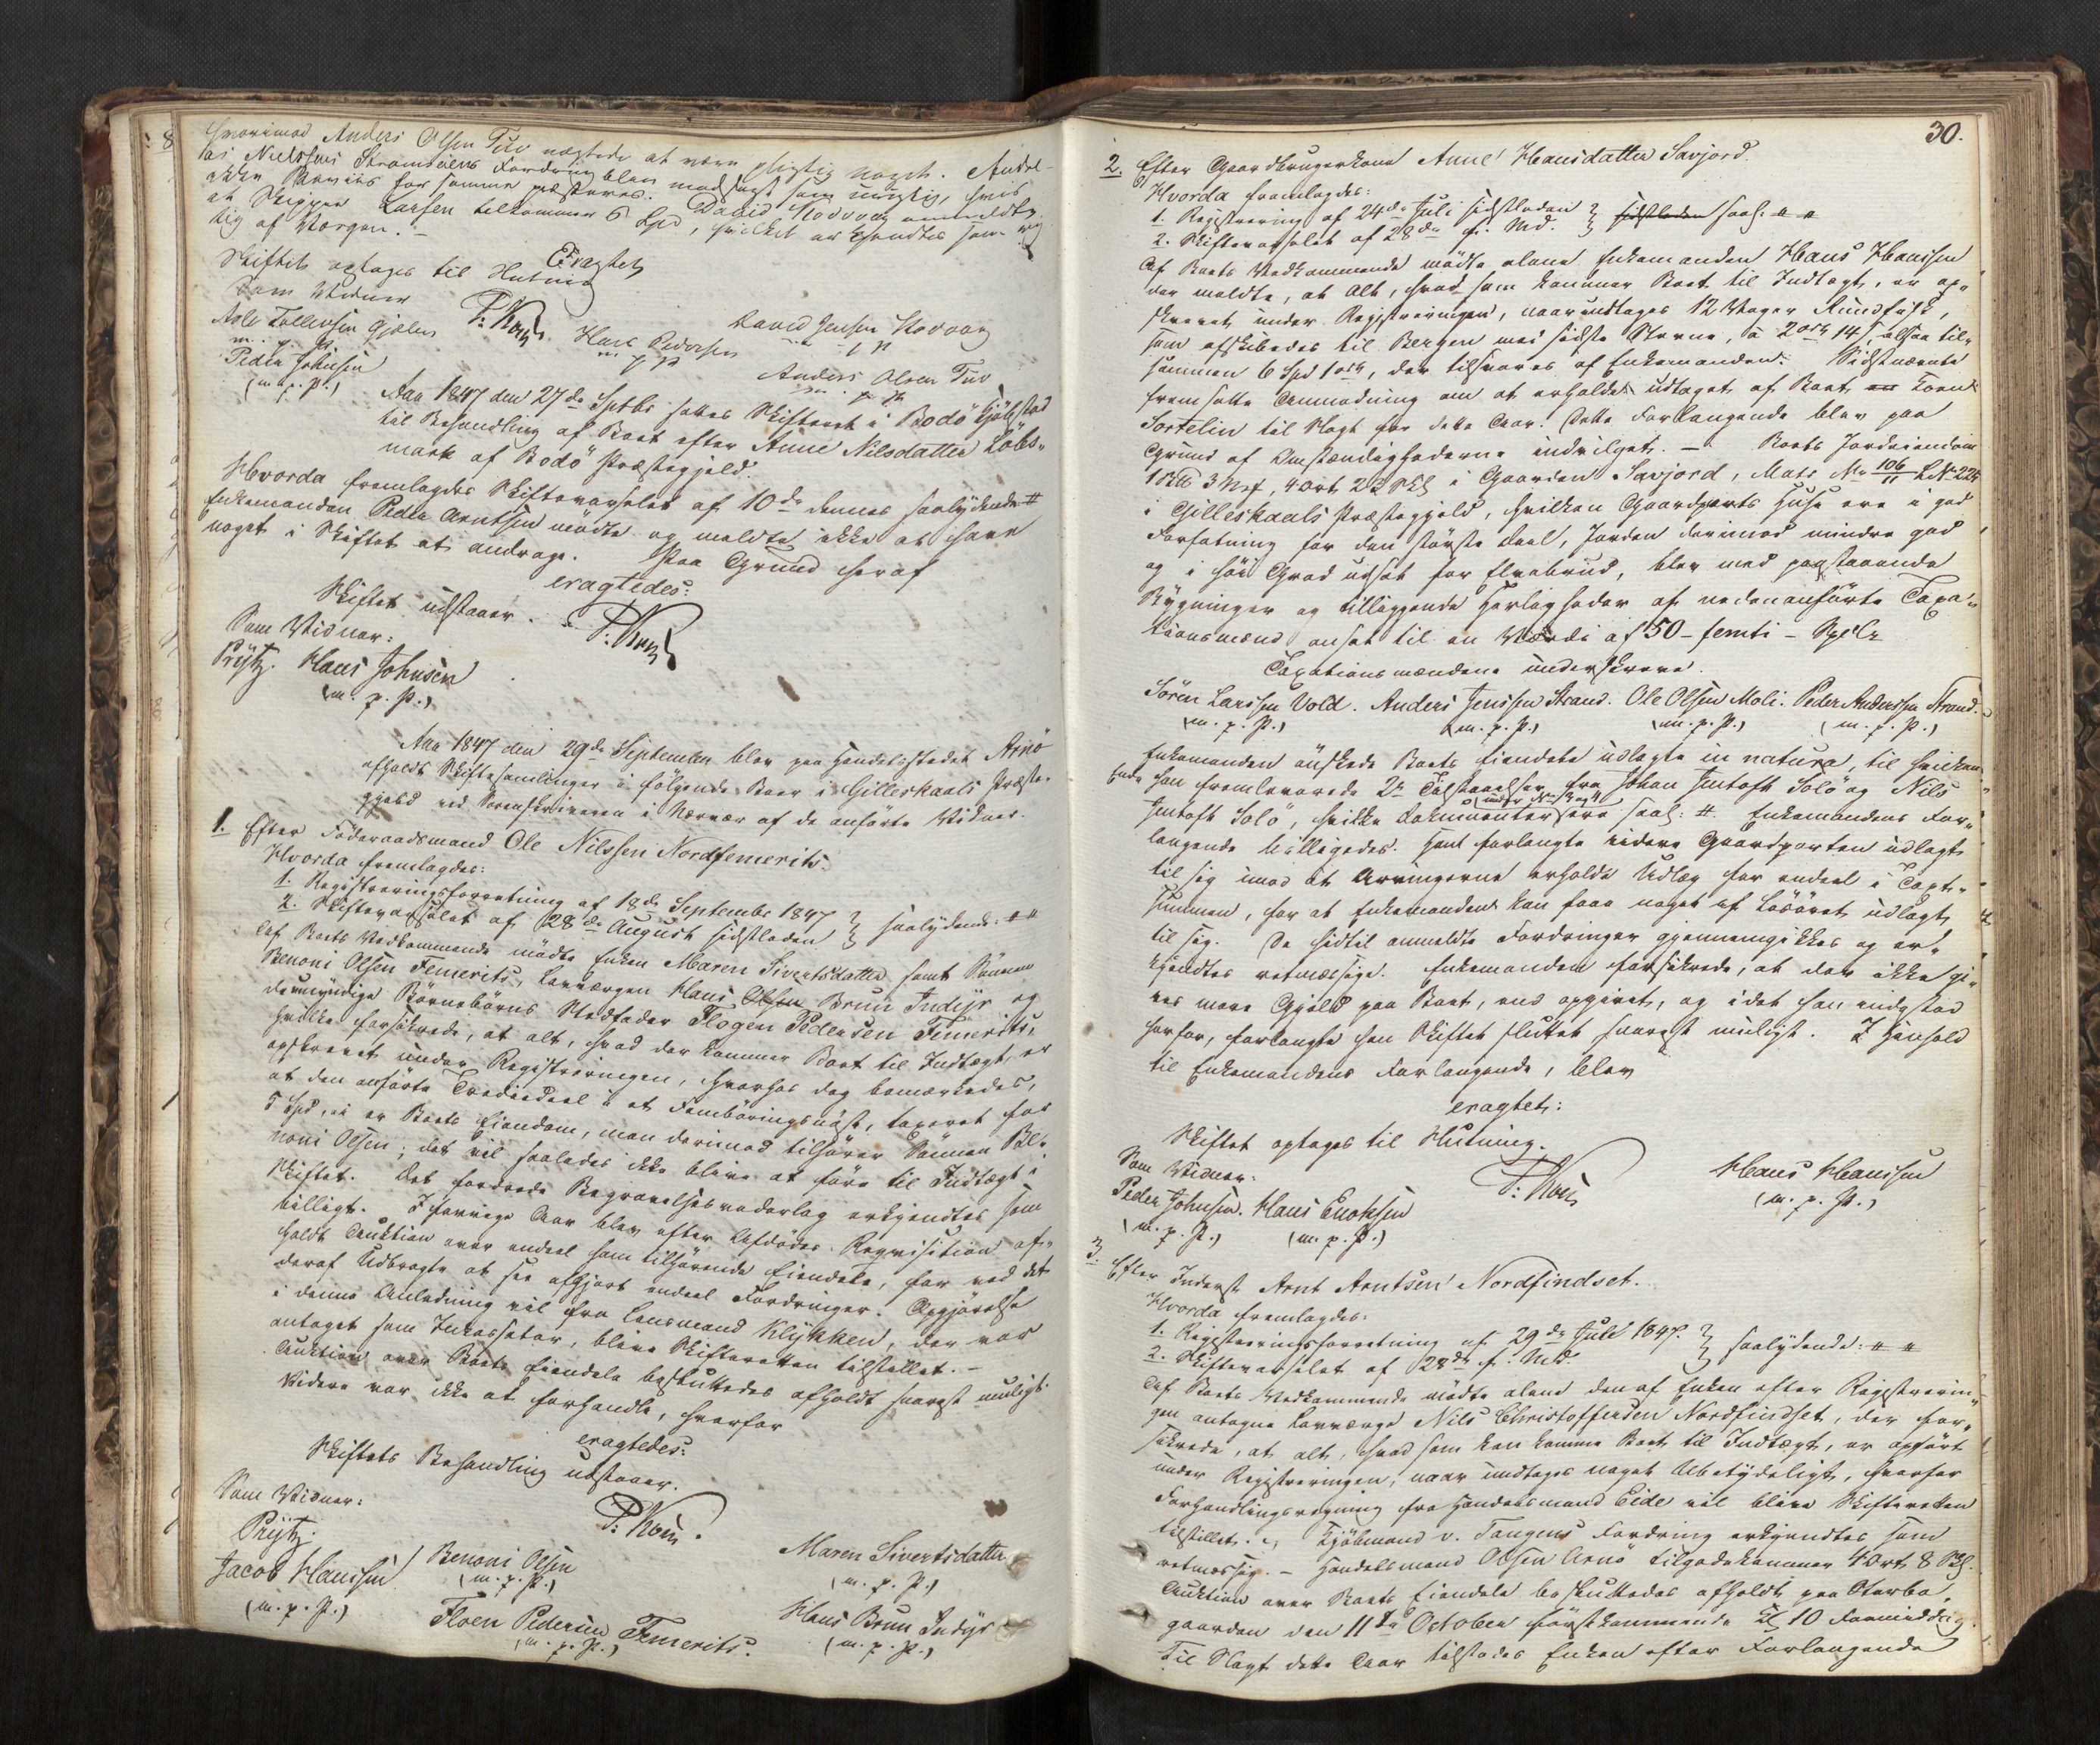 hvorimod Anders Olsen Tuv nægtede at være pligtig noget. Andre-
as Nielsens Strømsøens Fordring blev modsagt som urigtig, hvis
ikke Beviis for samme præsteres. David Hovvag anmeldte
at Skipper Larsen tilkommer 5 Spd, hvilket erkjendtes som rig-
tig af Værgen. –
Eragtet
Skiftet optages til Slutning
Som Vidner
P: Koren
David Jensen Hovvag
m p P
Asle Tollevsen Gjælen
Hans Pedersen
m p P
Peder Johnsen
(m. p. P.)
Anders Olsen Tuv
m. p. P.
Aar 1847 den 27de Septbr sattes Skifteret i Bodö Kjöbstad
til Behandling af Boet efter Anne Nilsdatter Löbs-
mark af Bodö Præstegjeld.
Hvorda fremlagdes Skiftevarselet af 10de dennes saalydende #
Enkemanden Peder Arntsen mødte og meldte ikke at have
noget i Skiftet at andrage. Paa Grund heraf
eragtedes:
Skiftet udstaaer.
P: Koren
Som Vidner:
Prÿtz. Hans Johnsen
(m. p. P.)
Aar 1847 den 29de September blev paa Handelsstedet Arnö
afholdt Skiftesamlinger i følgende Boer i Gilleskaals Præste-
gjeld ved Sorenskriveren i Nærvær af de anførte Vidner.
1. Efter Föderaadsmand Ole Nilssen Nordfemerits.
Hvorda fremlagdes:
1. Registreringsforretning af 18de Septembr 1847
2. Skiftevarselet af 28de August sidstleden } saalydende: # #
Af Boets Vedkommende mødte Enken Maren Sivertsdatter samt Sønnen
Benoni Olsen Femerits, Laugværgen Hans Olsen Bruun Indÿr og
de umyndige Børnebørns Stedfader Flogen Pedersen Femerits,
hvilke forsikrede, at alt, hvad der kommer Boet til Indtægt, er
opskrevet under Registreringen, hvorhos dog bemærkedes,
at den anførte Trediedeel i et Fembøringsnøst, taxeret for
5 Spd, ei er Boets Eiendom, men derimod tilhører Sønnen Be-
noni Olsen; det vil saaledes ikke blive at føre til Indtægt i
Skiftet. Det fordrede Begravelsesvederlag erkjendtes som
billigt. I forrige Aar blev efter Afdødes Reqvisition af-
holdt Auktion over endeel ham tilhørende Eiendele, for ved det
deraf Udbragte at see afgjort endeel Fordringer. Opgjørelse
i denne Anledning vil fra Lensmand Klÿkken, der var
antaget som Inkassator, blive Skifteretten tilstillet. –
Auktion over Boets Eiendele besluttedes afholdt snarest muligt.
Videre var ikke at forhandle, hvorfor
eragtedes:
Skiftets Behandling udstaaer.
Som Vidner:
P: Koren.
Prÿtz.
Maren Sivertsdatter
(m. p. P.)
Jacob Hanssen
(m. p. P.)
Benoni Olsen
(m. p. P.)
Floen Pedersen Femerits.
(m. p. P.)
Hans Bruun Indÿr
(m. p. P.)
30.
2. Efter Gaardbrugerkone Anne Hansdatter Savjord.
Hvorda fremlagdes:
1. Registrering af 24de Juli sidstleden
2. Skiftevarselet af 28de f. Md. } sidstleden saal. # #
Af Boets Vedkommende mødte alene Enkemanden Hans Hanssen
der meldte, at Alt, hvad som kommer Boet til Indtægt, er op-
skrevet under Registreringen, naar undtages 12 Voger Rundfisk,
som afskibedes til Bergen med sidste Stevne, à 2 ort 14 s, altsaa til-
sammen 6 Spd 1 ort, der tilsvares af Enkemanden. Sidstnævnte
fremsatte Anmodning om at erholde udtaget af Boet en Korn
Sortelin til Slagt for dette Aar. Dette Forlangende blev paa
Grund af Omstændighederne indvilget. – Boets Jordeiendom
1 Pd 3 Mrk, 4 Ort 22 skl i Gaarden Savjord, Matr. No 106 LNo 224
i Gilleskaals Præstegjeld, hvilken Gaardparts Huse ere i god
Forfatning for den største Deel, Jorden derimod mindre god
og i høi Grad udsat for Elvebrud, blev med paastaaende
Bygninger og tilliggende Herligheder af nedenanførte Taxa-
tionsmænd ansat til en Værdi af 50 – femti – Spdlr
Taxationsmændene underskreve.
Sören Larssen Vold. Anders Jenssen Strand. Ole Olsen Moli. Peder Anderssen Strand.
(m. p. P.) (m. p. P.) (m. p. P.) (m. p. P.)
Enkemanden ønskede Boets Eiendele udlagte in natura, til hvilken
Ende han fremleverede 2de Tilstaaelser fra Johan Jentoft Solö og Nils
Jentoft Solö, hvilke Dokumenter saal: #. Enkemandens For-
langende billigedes. Hant forlangte videre Gaardparten udlagt
til sig imod at Arvingerne erholde Udlæg for endeel i Taxt-
summen, for at Enkemanden kan faae noget af Løsøret udlagt
til sig. De hidtil anmeldte Fordringer gjennemgikkes og er-
kjendtes retmæssige. Enkemanden forsikrede, at der ikke gi-
ves mere Gjeld paa Boet, end opgivet, og idet han indestod
herfor, forlangte han Skiftet sluttet snarest muligst. I Henhold
til Enkemandens Forlangende, blev
eragtet:
Skiftet optages til Slutning.
Som Vidner:
P: Koren
Hans Hanssen
(m. p. P.)
Peder Johnsen. Hans Enoksen
(m. p. P.) (m. p. P.)
3. Efter Inderst Arnt Arntsen Nordfindset.
Hvorda fremlagdes:
1. Registreringsforretning af 29de Juli 1847.
2. Skiftevarselet af 28de f. Md. } saalydende: # #
Af Boets Vedkommende mødte alene den af Enken efter Registrerin-
gen antagne Laugværge Nils Christoffersen Nordfindset, der for-
sikrede, at alt, hvad som kan komme Boet til Indtægt, er opført
under Registreringen, naar undtages noget Ubetydeligt, hvorfor
Forhandlingsregning fra Handelsmand Eide vil blive Skifteretten
tilstillet. Kjøbmand v. Tangens Fordring erkjendtes som
retmæssig. – Handelsmand Olsen Arnö tilgodekommer 4 Ort 8 skl.
Auktion over Boets Eiendele besluttedes afholdt paa Sterbo-
gaarden den 11te October førstkommende Kl 10 Formiddag.
Til Slagt dette Aar tilstedes Enken efter Forlangende